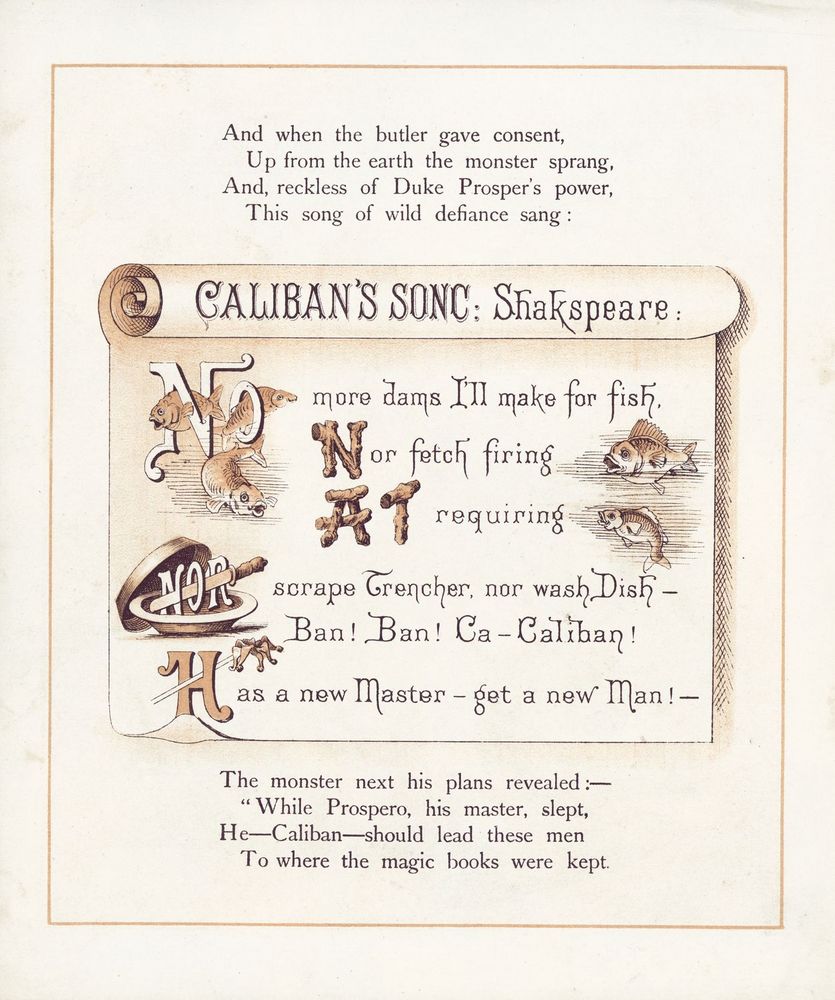 And when the butler gave consent,
Up from the earth the monster sprang,
And, reckless of Duke Prosper's power,
This song of wild defiance sang :
CALIBAN'S SONG: Shakspeare:
No more dams I'll make for fish,
Nor fetch firing
AT requiring
NOR scrape Trencher, nor wash Dish —
Ban! Ban! Ca - Caliban!
Has a new Master - get a new Man! —
The monster next his plans revealed :—
“While Prospero, his master, slept,
He—Caliban—should lead these men
To where the magic books were kept.